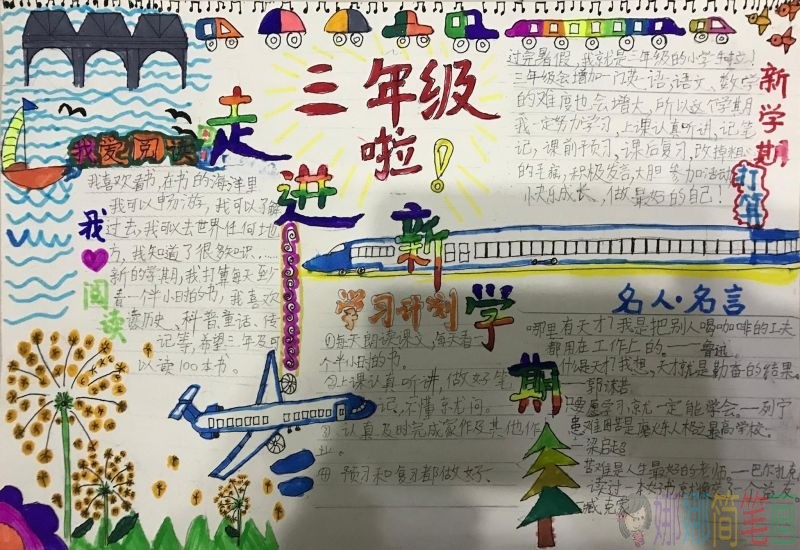 三年级
啦!
走进新学期
我爱阅读
我喜欢看书,在书的海洋里
我可以畅游,我可以了解
过去,我可以去世界任何地
方,我知道了很多知识……
新的学期,我打算每天至少
看一个半小时的书,我喜欢
读历史、科普童话、传
记等,希望三年及可
以读100本书。
我
阅读
新学期
打算
过完暑假,我就是三年级的小学
三年级会增加一门英语,语文、数学
的难度也会增大,所以这个学期
我一定努力学习,上课认真听讲,记笔
记,课前预习,课后复习,改掉粗心
的毛病,积极发言,大胆参加活动
快乐成长,做最好的自己!
学习计划
①每天朗读课文,每天看
个半小时的书。
②上课认真听讲,做好笔
记,不懂就问。
③认真及时完成家作及其他作
业。
④预习和复习都做好。
名人·名言
哪里有天才?我是把别人喝咖啡的工夫
都用在工作上的。——鲁迅
什么是天才?我想,天才就是勤奋的结果。
郭沫若
只要愿学习,就一定能学会。——列宁
患难困苦是磨炼人格之最高学校。
梁启超
苦难是人生最好的老师——巴尔扎克
读过一本好书,就像交了一个益友
臧克家
娜娜简笔画